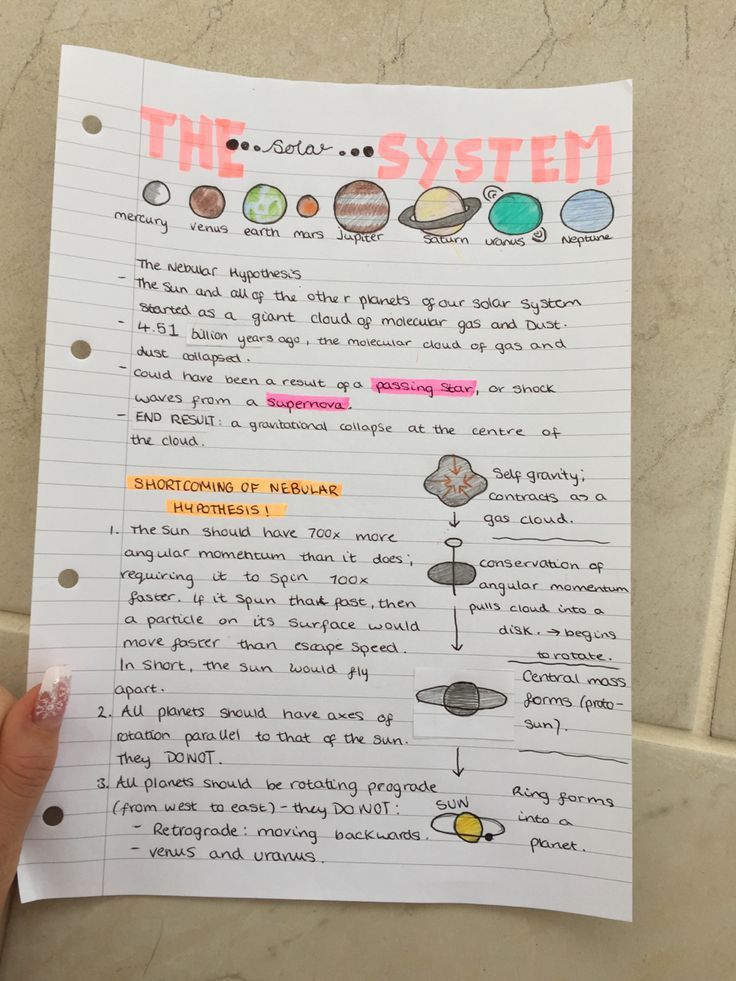 THE ...solar... SYSTEM
mercury venus earth mars Jupiter Saturn uranus Neptune
The Nebular Hypothesis
- The Sun and all of the other planets of our solar system
started as a giant cloud of molecular gas and Dust.
- 4.51 billion years ago, the molecular cloud of gas and
dust collapsed.
- could have been a result of a passing star, or shock
waves from a supernova.
- END RESULT: a gravitational collapse at the centre of
the cloud.
SHORTCOMING OF NEBULAR
HYPOTHESIS!
1. The Sun should have 700x more
angular momentum than it does;
requiring it to spin 100x
faster. If it spun that fast, then
a particle on its surface would
move faster than escape speed.
In short, the sun would fly
apart.
2. All planets should have axes of
rotation parallel to that of the sun.
They DO NOT.
3. All planets should be rotating prograde
(from west to east) - they DO NOT:
- Retrograde: moving backwards.
- venus and uranus.
Self gravity;
contracts as a
gas cloud.
conservation of
angular momentum
pulls cloud into a
disk. → begins
to rotate.
Central mass
forms (proto-
sun).
SUN
Ring forms
into a
planet.